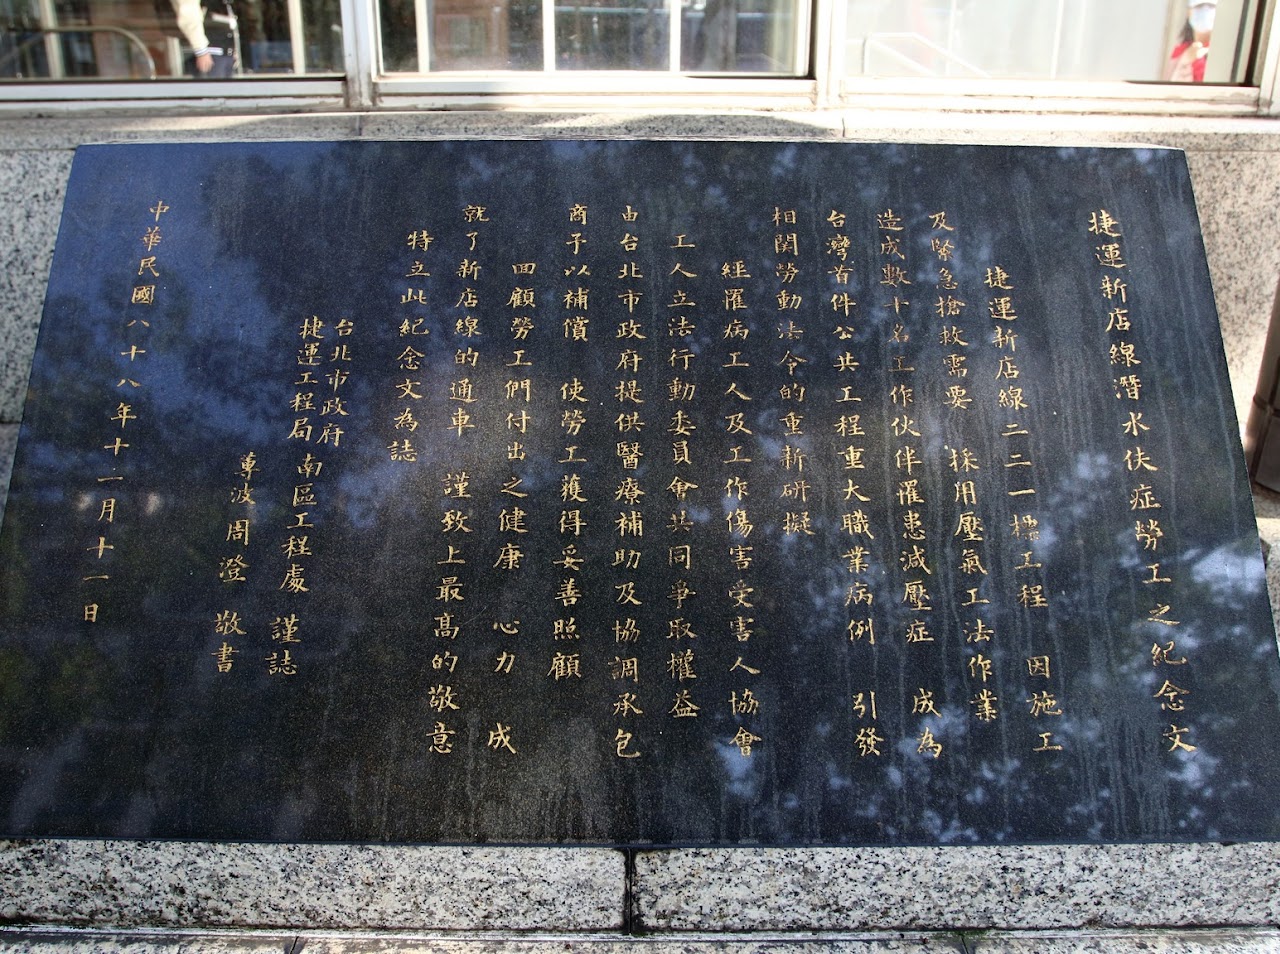 捷運新店線潛水伕症勞工之紀念文
捷運新店線二二一標工程 因施工
及緊急搶救需要 採用壓氣工法作業
造成數十名工作伙伴罹患減壓症 成為
台灣首件公共工程重大職業病例 引發
相関勞動法令的重新研擬
經罹病工人及工作傷害受害人協會
工人立法行動委員會共同爭取權益
由台北市政府提供醫療補助及協調承包
商予以補償 使勞工獲得妥善照顧
回顧勞工們付出之健康 心力 成
就了新店線的通車 謹致上最高的敬意
特立此紀念文為誌
台北市政府
捷運工程局南區工程處 謹誌
蓴波周澄 敬書
中華民國八十八年十一月十一日